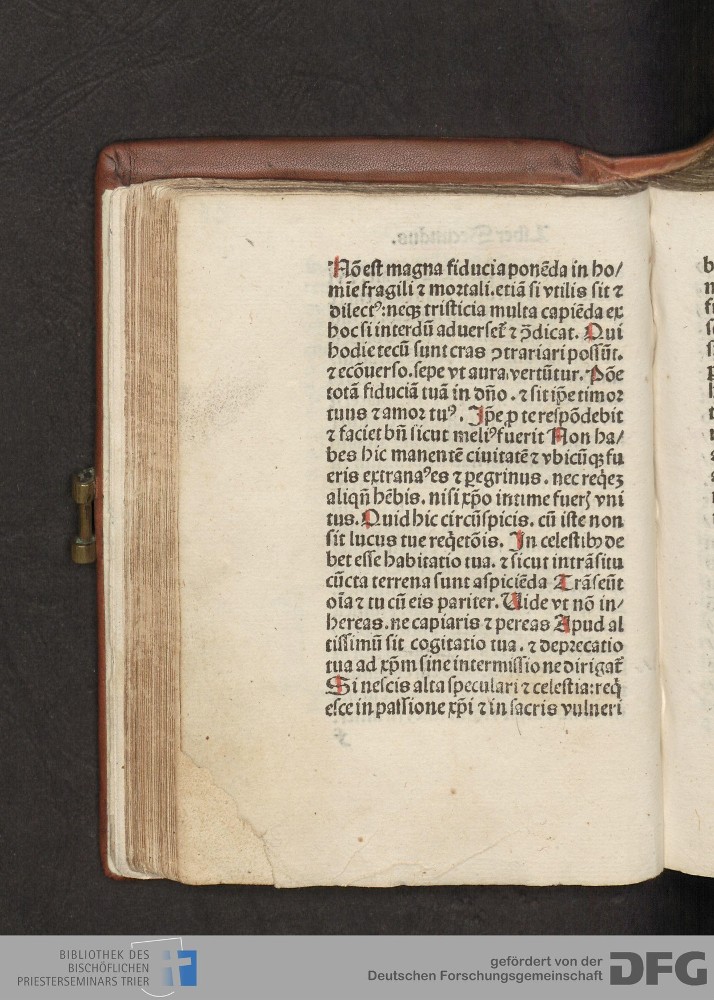 Nō est magna fiducia ponēda in ho/
mīe fragili ⁊ mortali. etiā si vtilis sit ⁊
dilectꝰ: neqꝫ tristicia multa capiēda ex
hoc si interdū aduerset᷑ ⁊ ꝯ̄dicat. Qui
hodie tecū sunt cras ꝯtrariari possūt.
⁊ ecōuerso. sepe vt aura vertūtur. Pōe
totā fiduciā tuā in dn̄o. ⁊ sit ip̄e timor
tuus ⁊ amor tuꝰ. Ip̄e ꝓ te respōdebit
⁊ faciet bn̄ sicut meliꝰ fuerit Non ha/
bes hic manentē ciuitatē ⁊ vbicūqꝫ fu
eris extranaꝰes ⁊ ꝑegrinus. nec reqͥeꝫ
aliqn̄ hēbis. nisi xp̄o intime fuerꝭ vni
tus. Quid hic circūspicis. cū iste non
sit locus tue reqͥetōis. In celestibꝰ de
bet esse habitatio tua. ⁊ sicut in trāsitu
cūcta terrena sunt aspiciēda Trāseūt
oīa ⁊ tu cū eis pariter. Uide vt nō in/
hereas. ne capiaris ⁊ pereas Apud al
tissimū sit cogitatio tua. ⁊ deprecatio
tua ad xp̄m sine intermissione dirigat᷑
Si nescis alta speculari ⁊ celestia: reqͥ
esce in passione xp̄i ⁊ in sacris vulneri
BIBLIOTHEK DES
BISCHÖFLICHEN
PRIESTERSEMINARS TRIER
gefördert von der
Deutschen Forschungsgemeinschaft
DFG